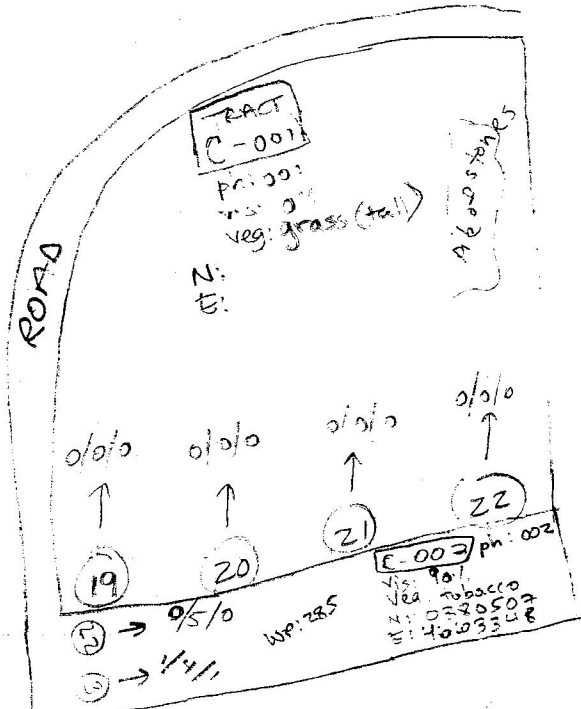 TRACT
C-001
ph: 001
vis: 0%
veg: grass (tall)
N:
E:
ROAD
0/0/0
0/0/0
0/0/0
0/0/0
19
20
21
22
C-002 ph: 002
vis: 90%
veg: tobacco
N: 0380507
E: 4003348
→ 0/5/0
wp: 285
→ 1/4/1